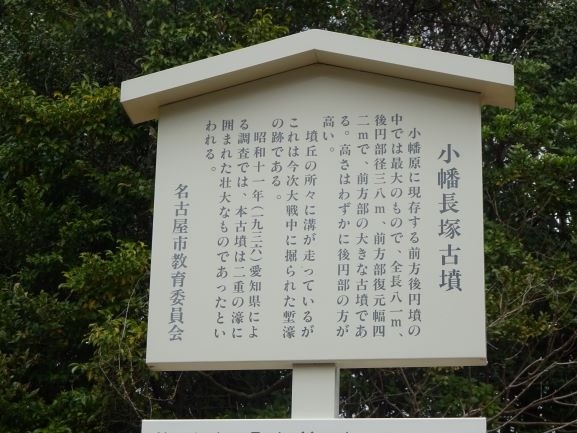 小幡長塚古墳
小幡原に現存する前方後円墳の
中では最大のもので、全長八一m、
後円部径三八m、前方部復元幅四
二mで、前方部の大きな古墳であ
る。高さはわずかに後円部の方が
高い。
墳丘の所々に溝が走っているが
これは今次大戦中に掘られた塹濠
の跡である。
昭和十一年(一九三六)愛知県によ
る調査では、本古墳は二重の濠に
囲まれた壮大なものであったとい
われる。
名古屋市教育委員会